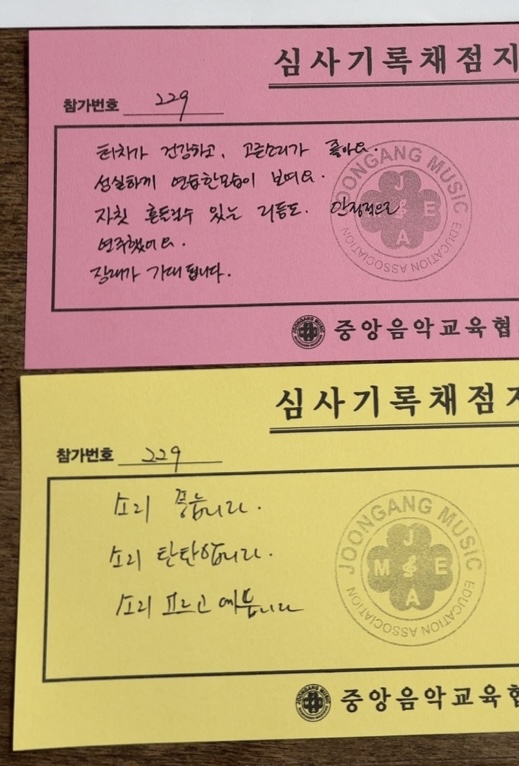 심사기록채점지
참가번호 229
터치가 건강하고, 고른소리가 좋아요.
성실하게 연습한모습이 보여요.
자칫 흔들릴수 있는 리듬도. 안정적으로
연주했어요.
장래가 기대됩니다.
JOONGANG MUSIC EDUCATION ASSOCIATION
J M E A
중앙음악교육협
심사기록채점지
참가번호 229
소리 좋습니다.
소리 탄탄합니다.
소리 고르고 예쁩니다
JOONGANG MUSIC EDUCATION ASSOCIATION
J M E A
중앙음악교육협